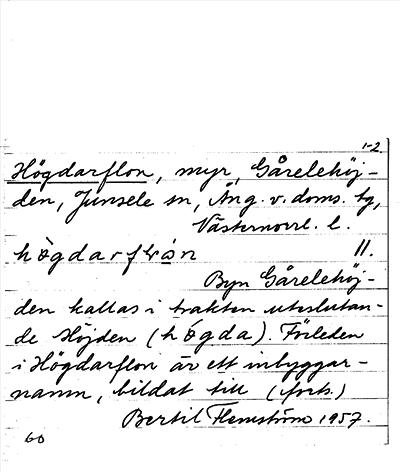 1-2.
Högdarflon, myr, Gårelehöj-
den, Junsele sn, Ång. v. doms. tg,
Västernorrl. l.
högdarflόn 11.
Byn Gårelehöj-
den kallas i trakten uteslutan-
de Höjden (högda). Förleden
i Högdarflon är ett inbyggar-
namn, bildat till (forts.)
Bertil Flemström 1957.
60